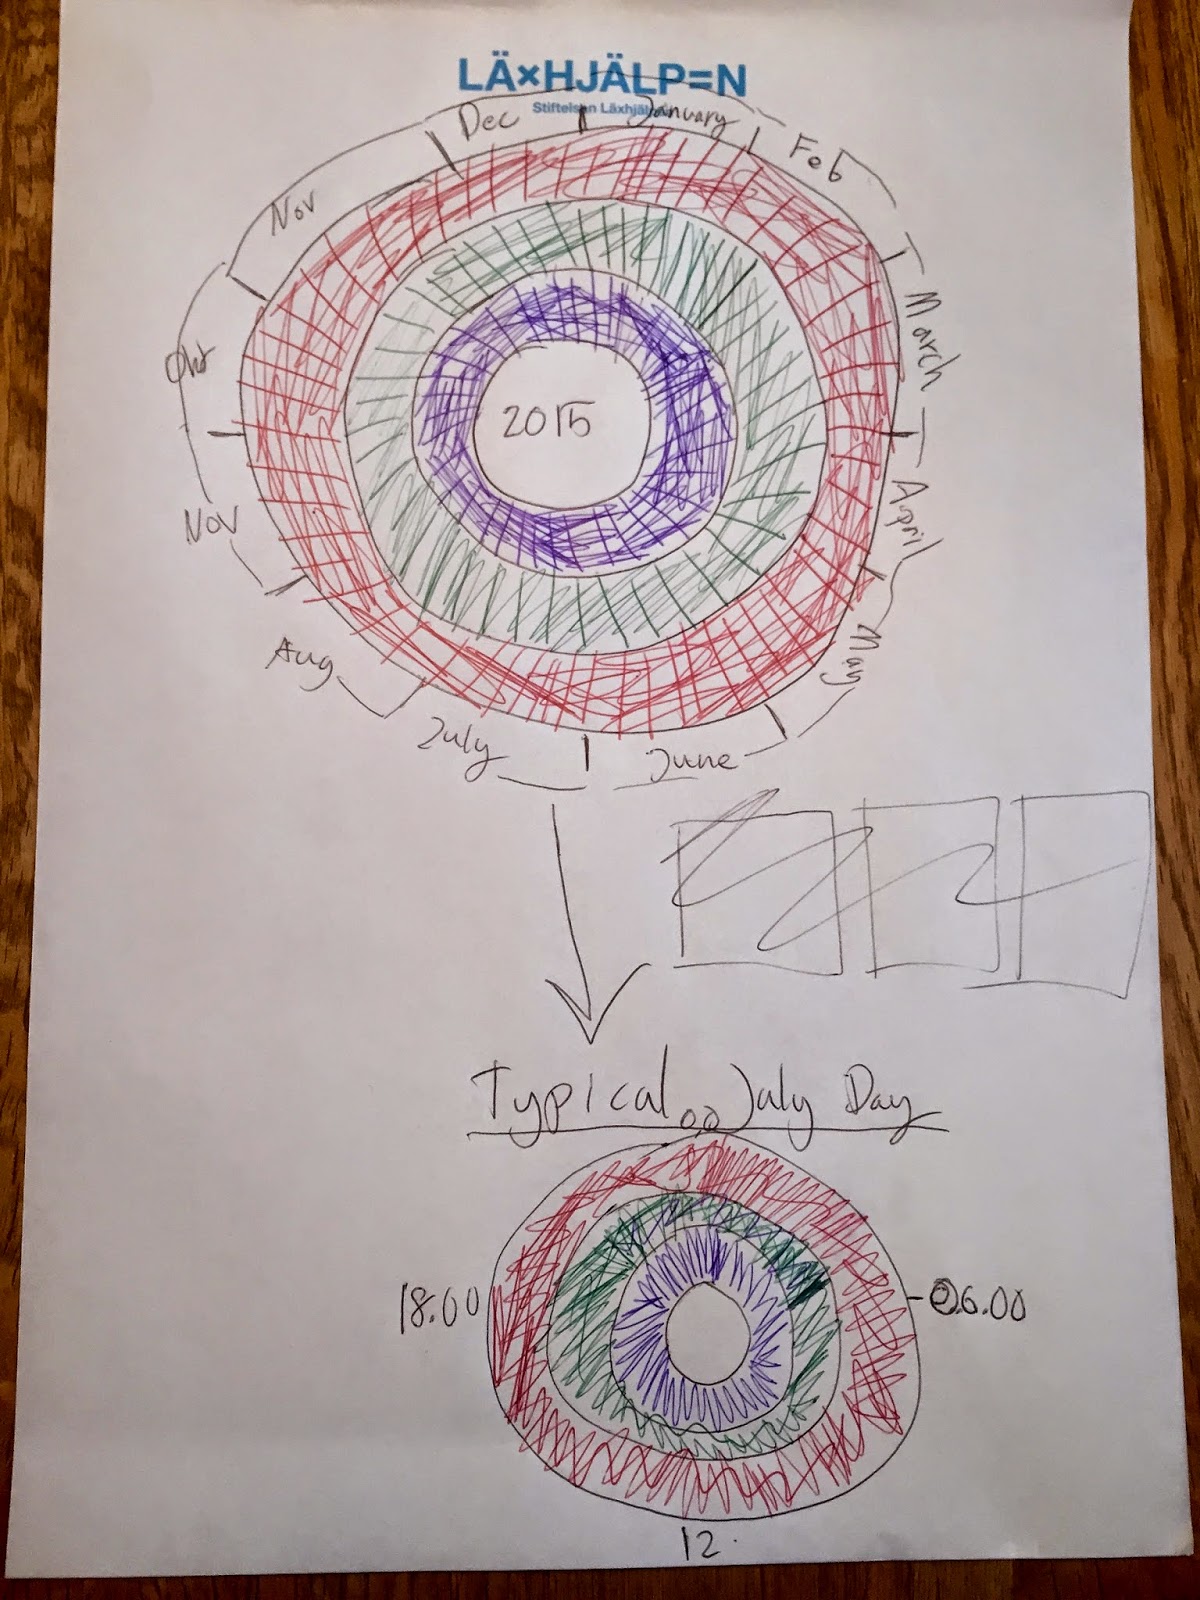 LÄ×HJÄLP=N
Stiftelsen Läxhjälpen
Dec
January
Feb
March
April
May
June
July
Aug
Nov
Okt
Nov
2015
Typical July Day
0,0
18.00
06.00
12.